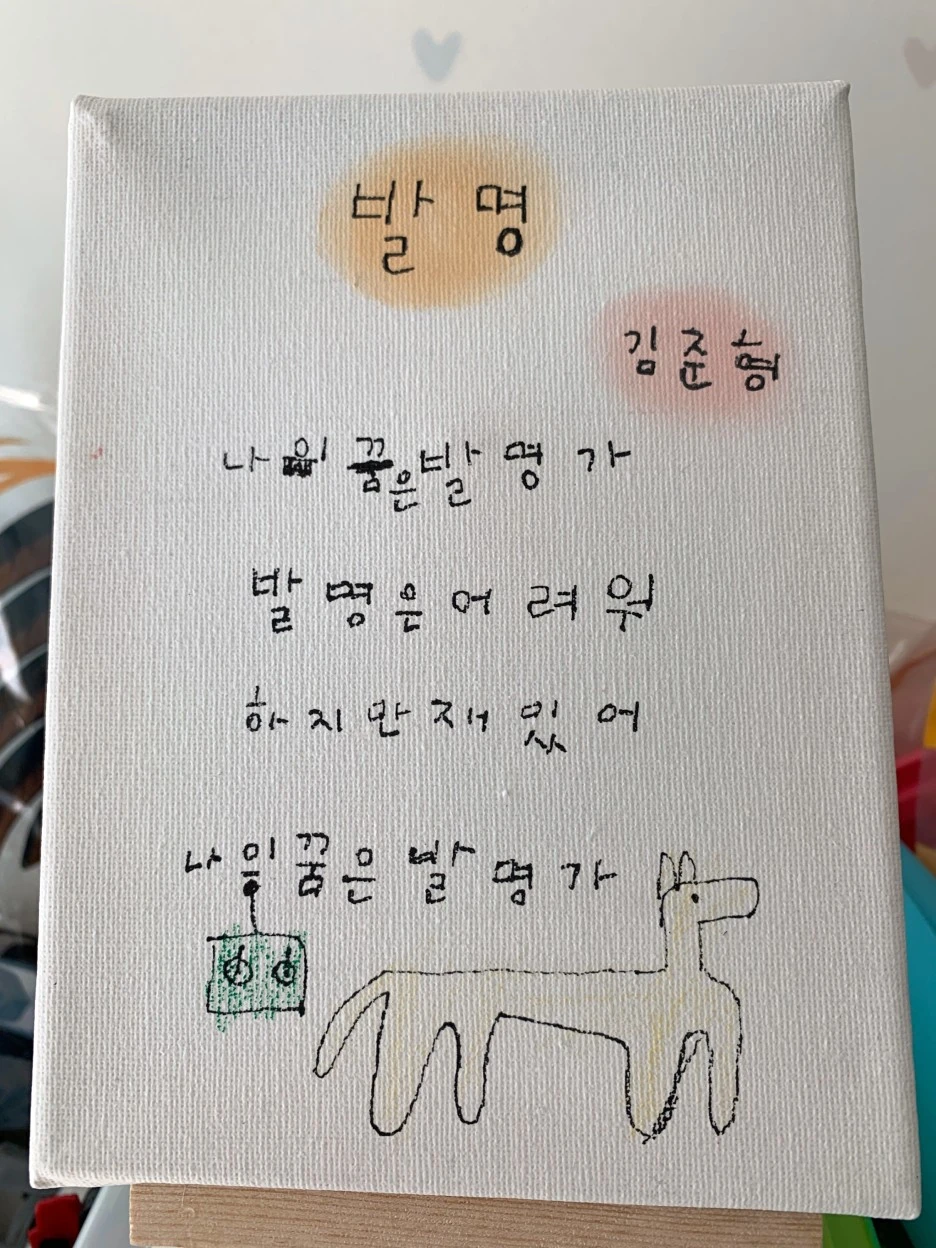 발명
김준형
나의 꿈은 발명가
발명은 어려워
하지만 재있어
나의 꿈은 발명가